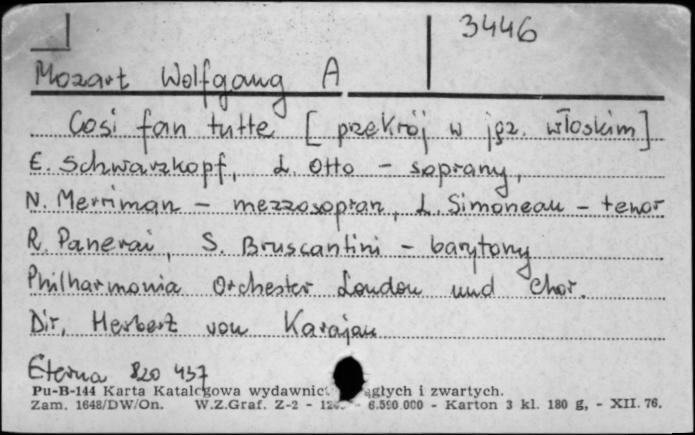 3446
Mozart Wolfgang A
Cosi fan tutte [ przekrój w jęz. włoskim ]
E. Schwarzkopf, L. Otto - soprany,
N. Merriman - mezzosopran, L. Simoneau - tenor
R. Panerai, S. Bruscantini - barytony
Philharmonia Orchester London und Chor.
Dir. Herbert von Karajan
Eterna 820 437
Pu-B-144 Karta Katalogowa wydawnic ągłych i zwartych.
Zam. 1648/DW/On. W.Z.Graf. Z-2 - - 6.590.000 - Karton 3 kl. 180 g, - XII. 76.